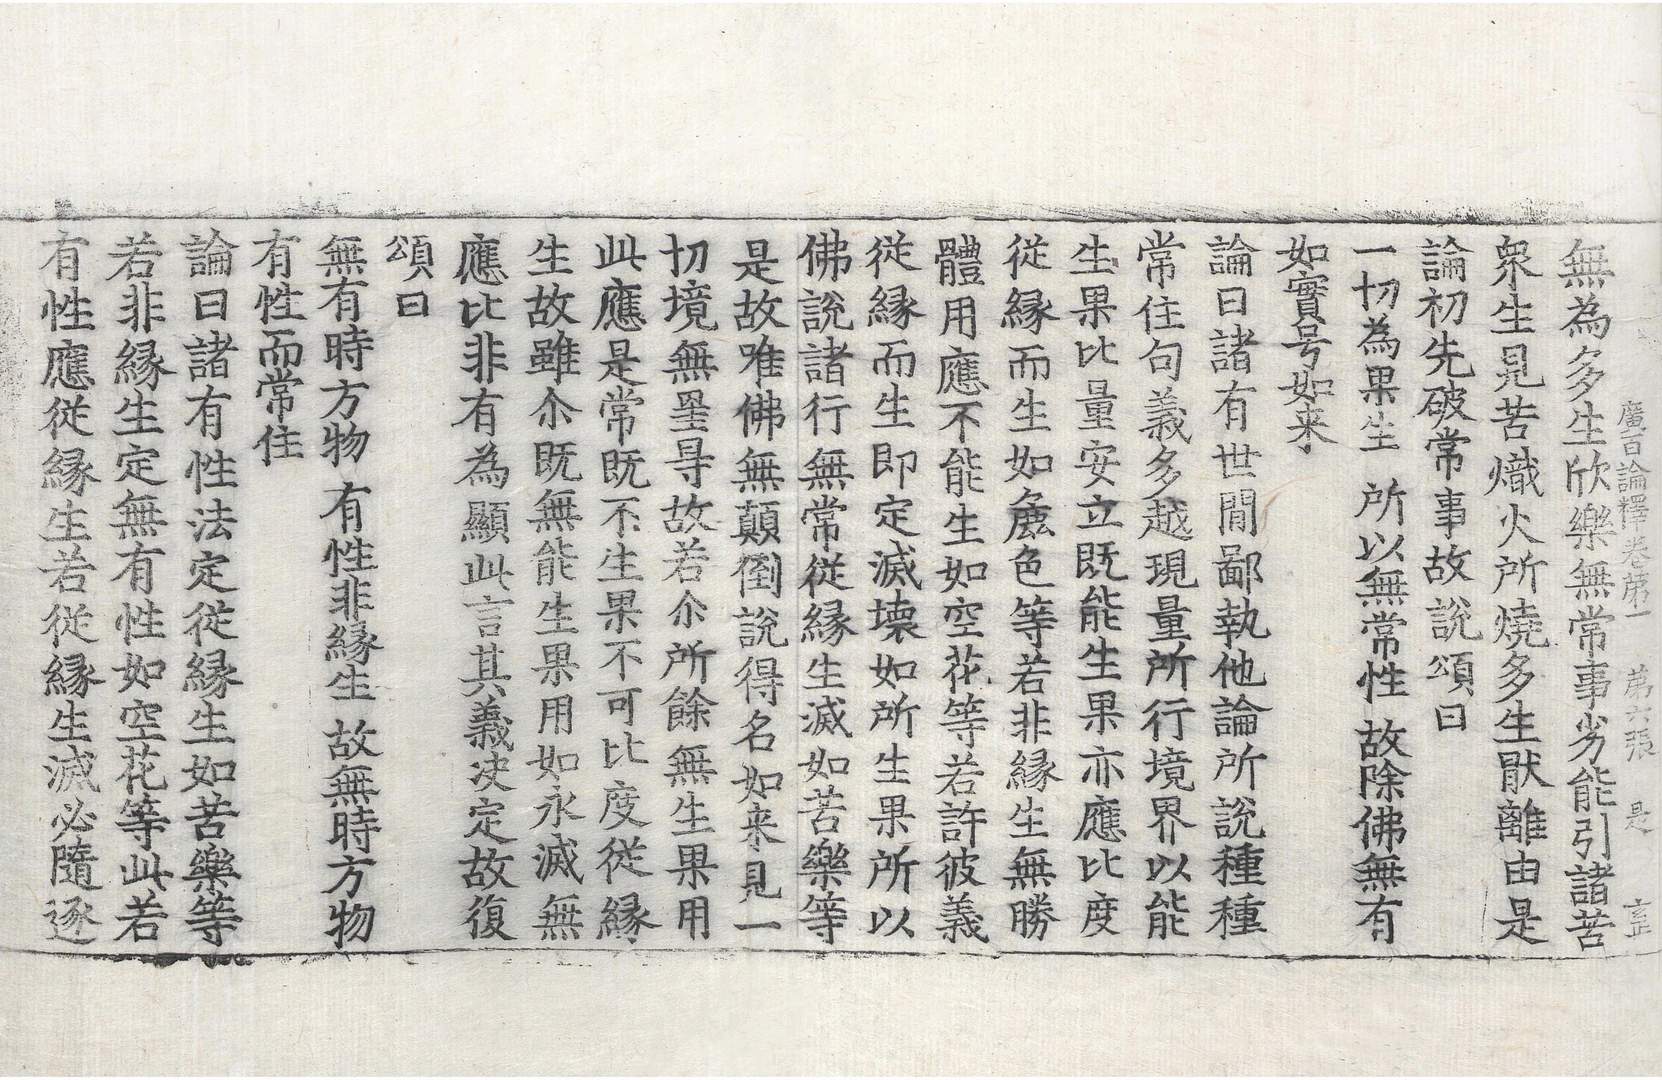 廣百論釋卷第一 第六張 是
無為多生欣樂無常事劣能引諸苦
衆生見苦熾火所燒多生猒離由是
論初先破常事故說頌曰
一切為果生 所以無常性 故除佛無有
如實号如来
論曰諸有世間鄙執他論所說種種
常住句義多越現量所行境界以能
生果比量安立既能生果亦應比度
從縁而生如麁色等若非縁生無勝
體用應不能生如空花等若許彼義
從縁而生即定滅壊如所生果所以
佛說諸行無常從縁生滅如苦樂等
是故唯佛無顛倒說得名如来見一
切境無罣㝵故若尒所餘無生果用
此應是常既不生果不可比度從縁
生故雖尒既無能生果用如永滅無
應比非有為顯此言其義决定故復
頌曰
無有時方物 有性非縁生 故無時方物
有性而常住
論曰諸有性法定從縁生如苦樂等
若非縁生定無有性如空花等此若
有性應從縁生若從縁生滅必隨逐